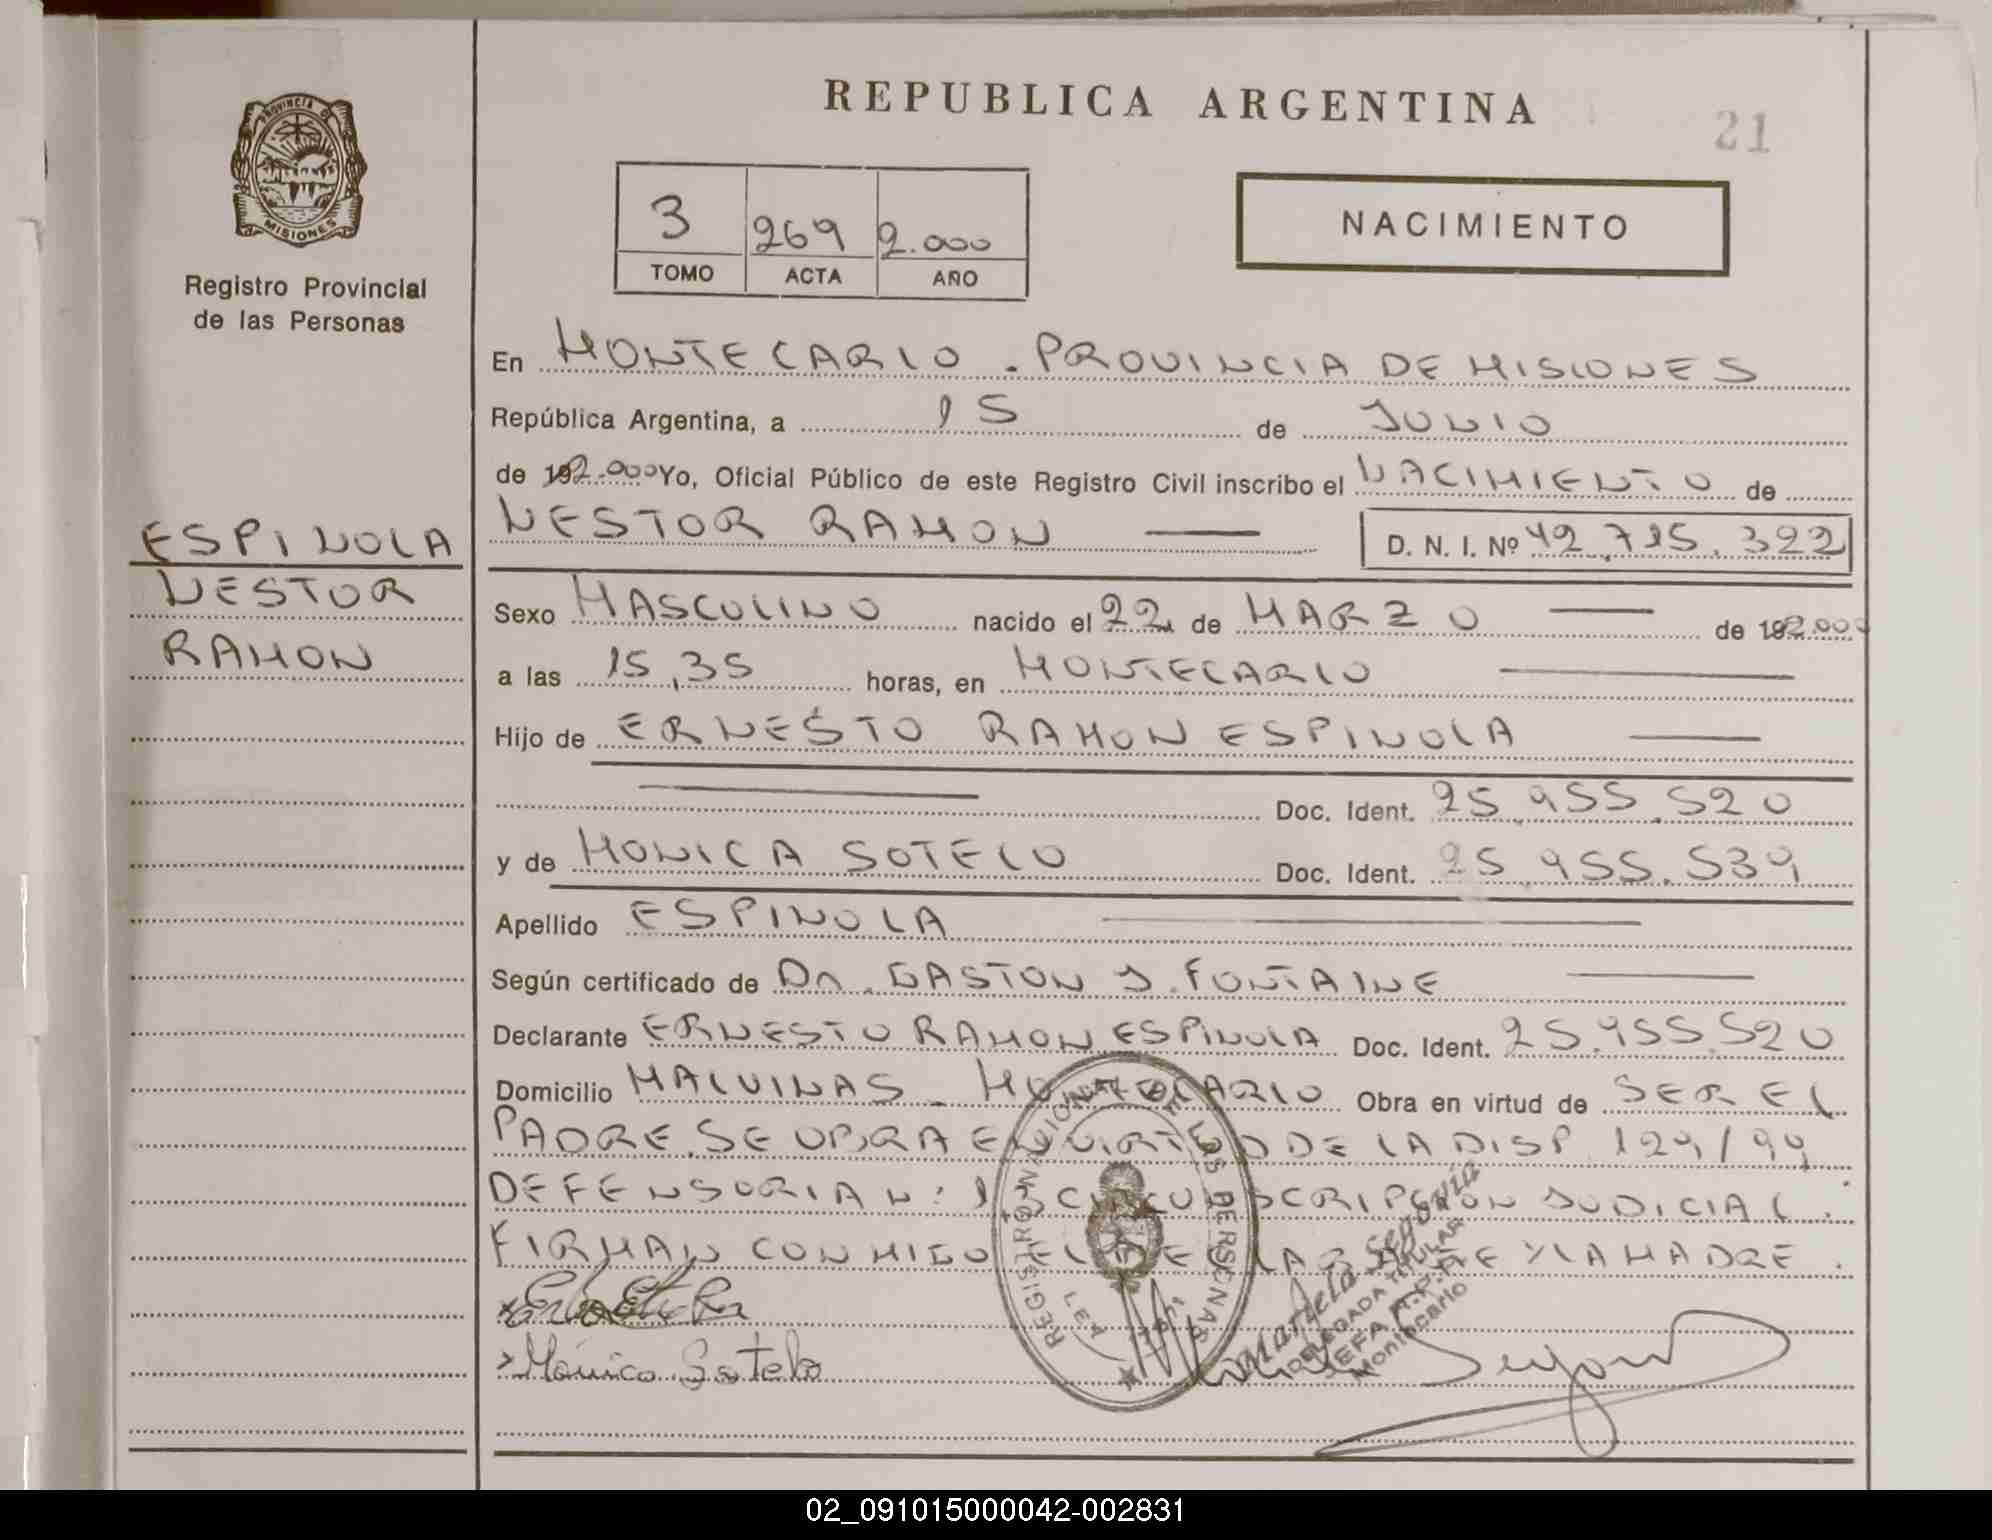 REPUBLICA ARGENTINA
21
PROVINCIA DE
MISIONES
Registro Provincial
de las Personas
3 269 2.000
TOMO ACTA AÑO
NACIMIENTO
En MONTECARLO . PROVINCIA DE MISIONES
República Argentina, a 15 de JUNIO
de 192.000 Yo, Oficial Público de este Registro Civil inscribo el NACIMIENTO de
NESTOR RAMON D. N. I. Nº 42.715.322
ESPINOLA
NESTOR
RAMON
Sexo MASCULINO nacido el 22 de MARZO de 192.000
a las 15,35 horas, en MONTECARLO
Hijo de ERNESTO RAMON ESPINOLA
Doc. Ident. 25.955.520
y de MONICA SOTELO Doc. Ident. 25.955.539
Apellido ESPINOLA
Según certificado de Dr. GASTON J. FONTAINE
Declarante ERNESTO RAMON ESPINOLA Doc. Ident. 25.955.520
Domicilio MALVINAS - MONTECARLO Obra en virtud de SER EL
PADRE. SE OBRA EN VIRTUD DE LA DISP. 124/99
DEFENSORIA N: 1 3 CIRCUNSCRIPCION JUDICIAL.
FIRMAN CONMIGO EL DECLARANTE Y LA MADRE.
Mónica Sotelo
REGISTRO NACIONAL DE LAS PERSONAS
LEY
Mariela Segovia
DELEGADA TITULAR
JEFA R.P.P.
Montecarlo
02_091015000042-002831